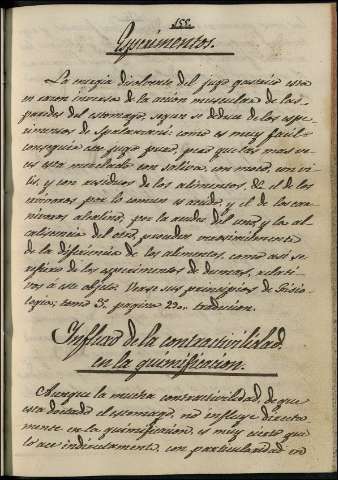 155.
Esperimentos.
La energia disolvente del jugo gastrico esta
en razon inversa de la accion muscular de las
paredes del estomago, segun se deduce de los espe-
rimentos de Spalanzani: como es muy facil
conseguir jugo puro, pues que las mas ve-
ces esta mezclado con saliva, con moco, con vi-
lis, y con residuos de los alimentos, &c. el de los
por lo comun es acido, y el de los car-
nivoros alcalino, pero la acidez del uno, y la al-
calescencia del otro, proceden
de la diferencia de los alimentos, como asi se
de los esperimentos de Dumas, relati-
vos a este objeto. Vease sus principios de Fisio-
logia; tomo 3. pagina 230. traduccion.
Influxo de la contractivilidad
en la quimificacion.
Aunque la mucha contractivilidad, de que
esta dotado el estomago, no influye directa-
mente en la quimificacion, es muy cierto que
lo ace indirectamente, con particularidad en